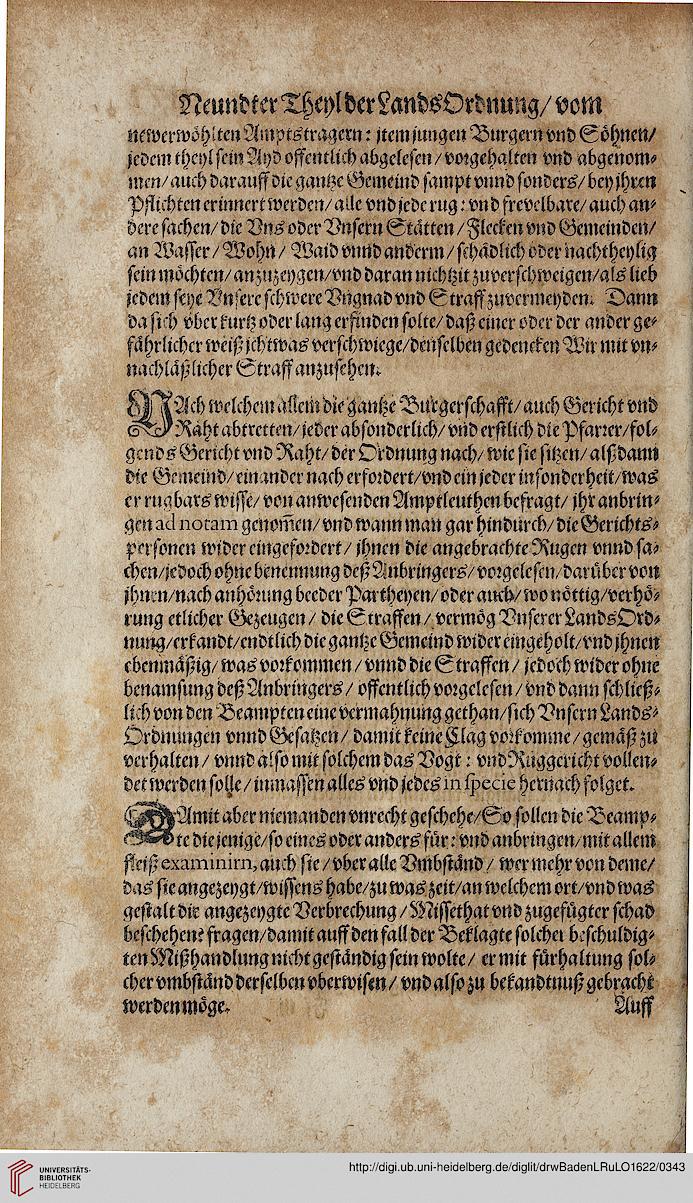 Neundter Theyl der Lands Ordnung/ vom
newerwöhlten Amptstragern: jtem jungen Burgern vnd Söhnen/
jedem theyl sein Ayd offentlich abgelesen/ vorgehalten vnd abgenom-
men/ auch darauff die gantze Gemeind sampt vnnd sonders/ bey jhren
Pflichten erinnert werden/ alle vnd jede rug: vnd frevelbare/ auch an-
dere sachen/ die Vns oder Vnsern Stätten/ Flecken vnd Gemeinden/
an Wasser/ Wohn/ Waid vnnd anderm/ schädlich oder nachtheylig
sein möchten/ anzuzeygen/ vnd daran nichtzit zuverschweigen/ als lieb
jedem seye Vnsere schwere Vngnad vnd Straff zuvermeyden. Dann
da sich vber kurtz oder lang erfinden solte/ daß einer oder der ander ge-
fährlicher weiß jchtwas verschwiege/ denselben gedencken Wir mit vn-
nachläßlicher Straff anzusehen.
NAch welchem allem die gantze Burgerschafft/ auch Gericht vnd
Raht abtretten/ jeder absonderlich/ vnd erstlich die Pfarrer/ fol-
gends Gericht vnd Raht/ der Ordnung nach/ wie sie sitzen/ alß dann
die Gemeind/ einander nach erfordert/ vnd ein jeder insonderheit/ was
er rugbars wisse/ von anwesenden Amptleuthen befragt/ jhr anbrin-
gen ad notam genom̃en/ vnd wann man gar hindurch/ die Gerichts-
personen wider eingefordert/ jhnen die angebrachte Rugen vnnd sa-
chen/ jedoch ohne benennung deß Anbringers/ vorgelesen/ darüber von
jhnen/ nach anhörung beeder Partheyen/ oder auch/ wo nöttig/ verhö-
rung etlicher Gezeugen/ die Straffen/ vermög Vnserer Lands Ord-
nung/ erkandt/ endtlich die gantze Gemeind wider eingeholt/ vnd jhnen
ebenmäßig/ was vorkommen/ vnnd die Straffen/ jedoch wider ohne
benamsung deß Anbringers/ offentlich vorgelesen/ vnd dann schließ-
lich von den Beampten eine vermahnung gethan/ sich Vnsern Lands-
Ordnungen vnnd Gesatzen/ damit keine Clag vorkomme/ gemäß zu
verhalten/ vnnd also mit solchem das Vogt: vnd Rüggericht vollen-
det werden solle/ inmassen alles vnd jedes in specie hernach folget.
DAmit aber niemanden vnrecht geschehe/ So sollen die Beamp-
te die jenige/ so eines oder anders für: vnd anbringen/ mit allem
fleiß examinirn, auch sie/ vber alle Vmbständ/ wer mehr von deme/
das sie angezeygt/ wissens habe/ zu was zeit/ an welchem ort/ vnd was
gestalt die angezeygte Verbrechung/ Missethat vnd zugefügter schad
beschehen: fragen/ damit auff den fall der Beklagte solcher beschuldig-
ten Mißhandlung nicht geständig sein wolte/ er mit fürhaltung sol-
cher vmbständ derselben vberwisen/ vnd also zu bekandtnuß gebracht
werden möge.
Auff
UNIVERSITÄTS-
BIBLIOTHEK
HEIDELBERG
http://digi.ub.uni-heidelberg.de/diglit/drwBadenLRuLO1622/0343